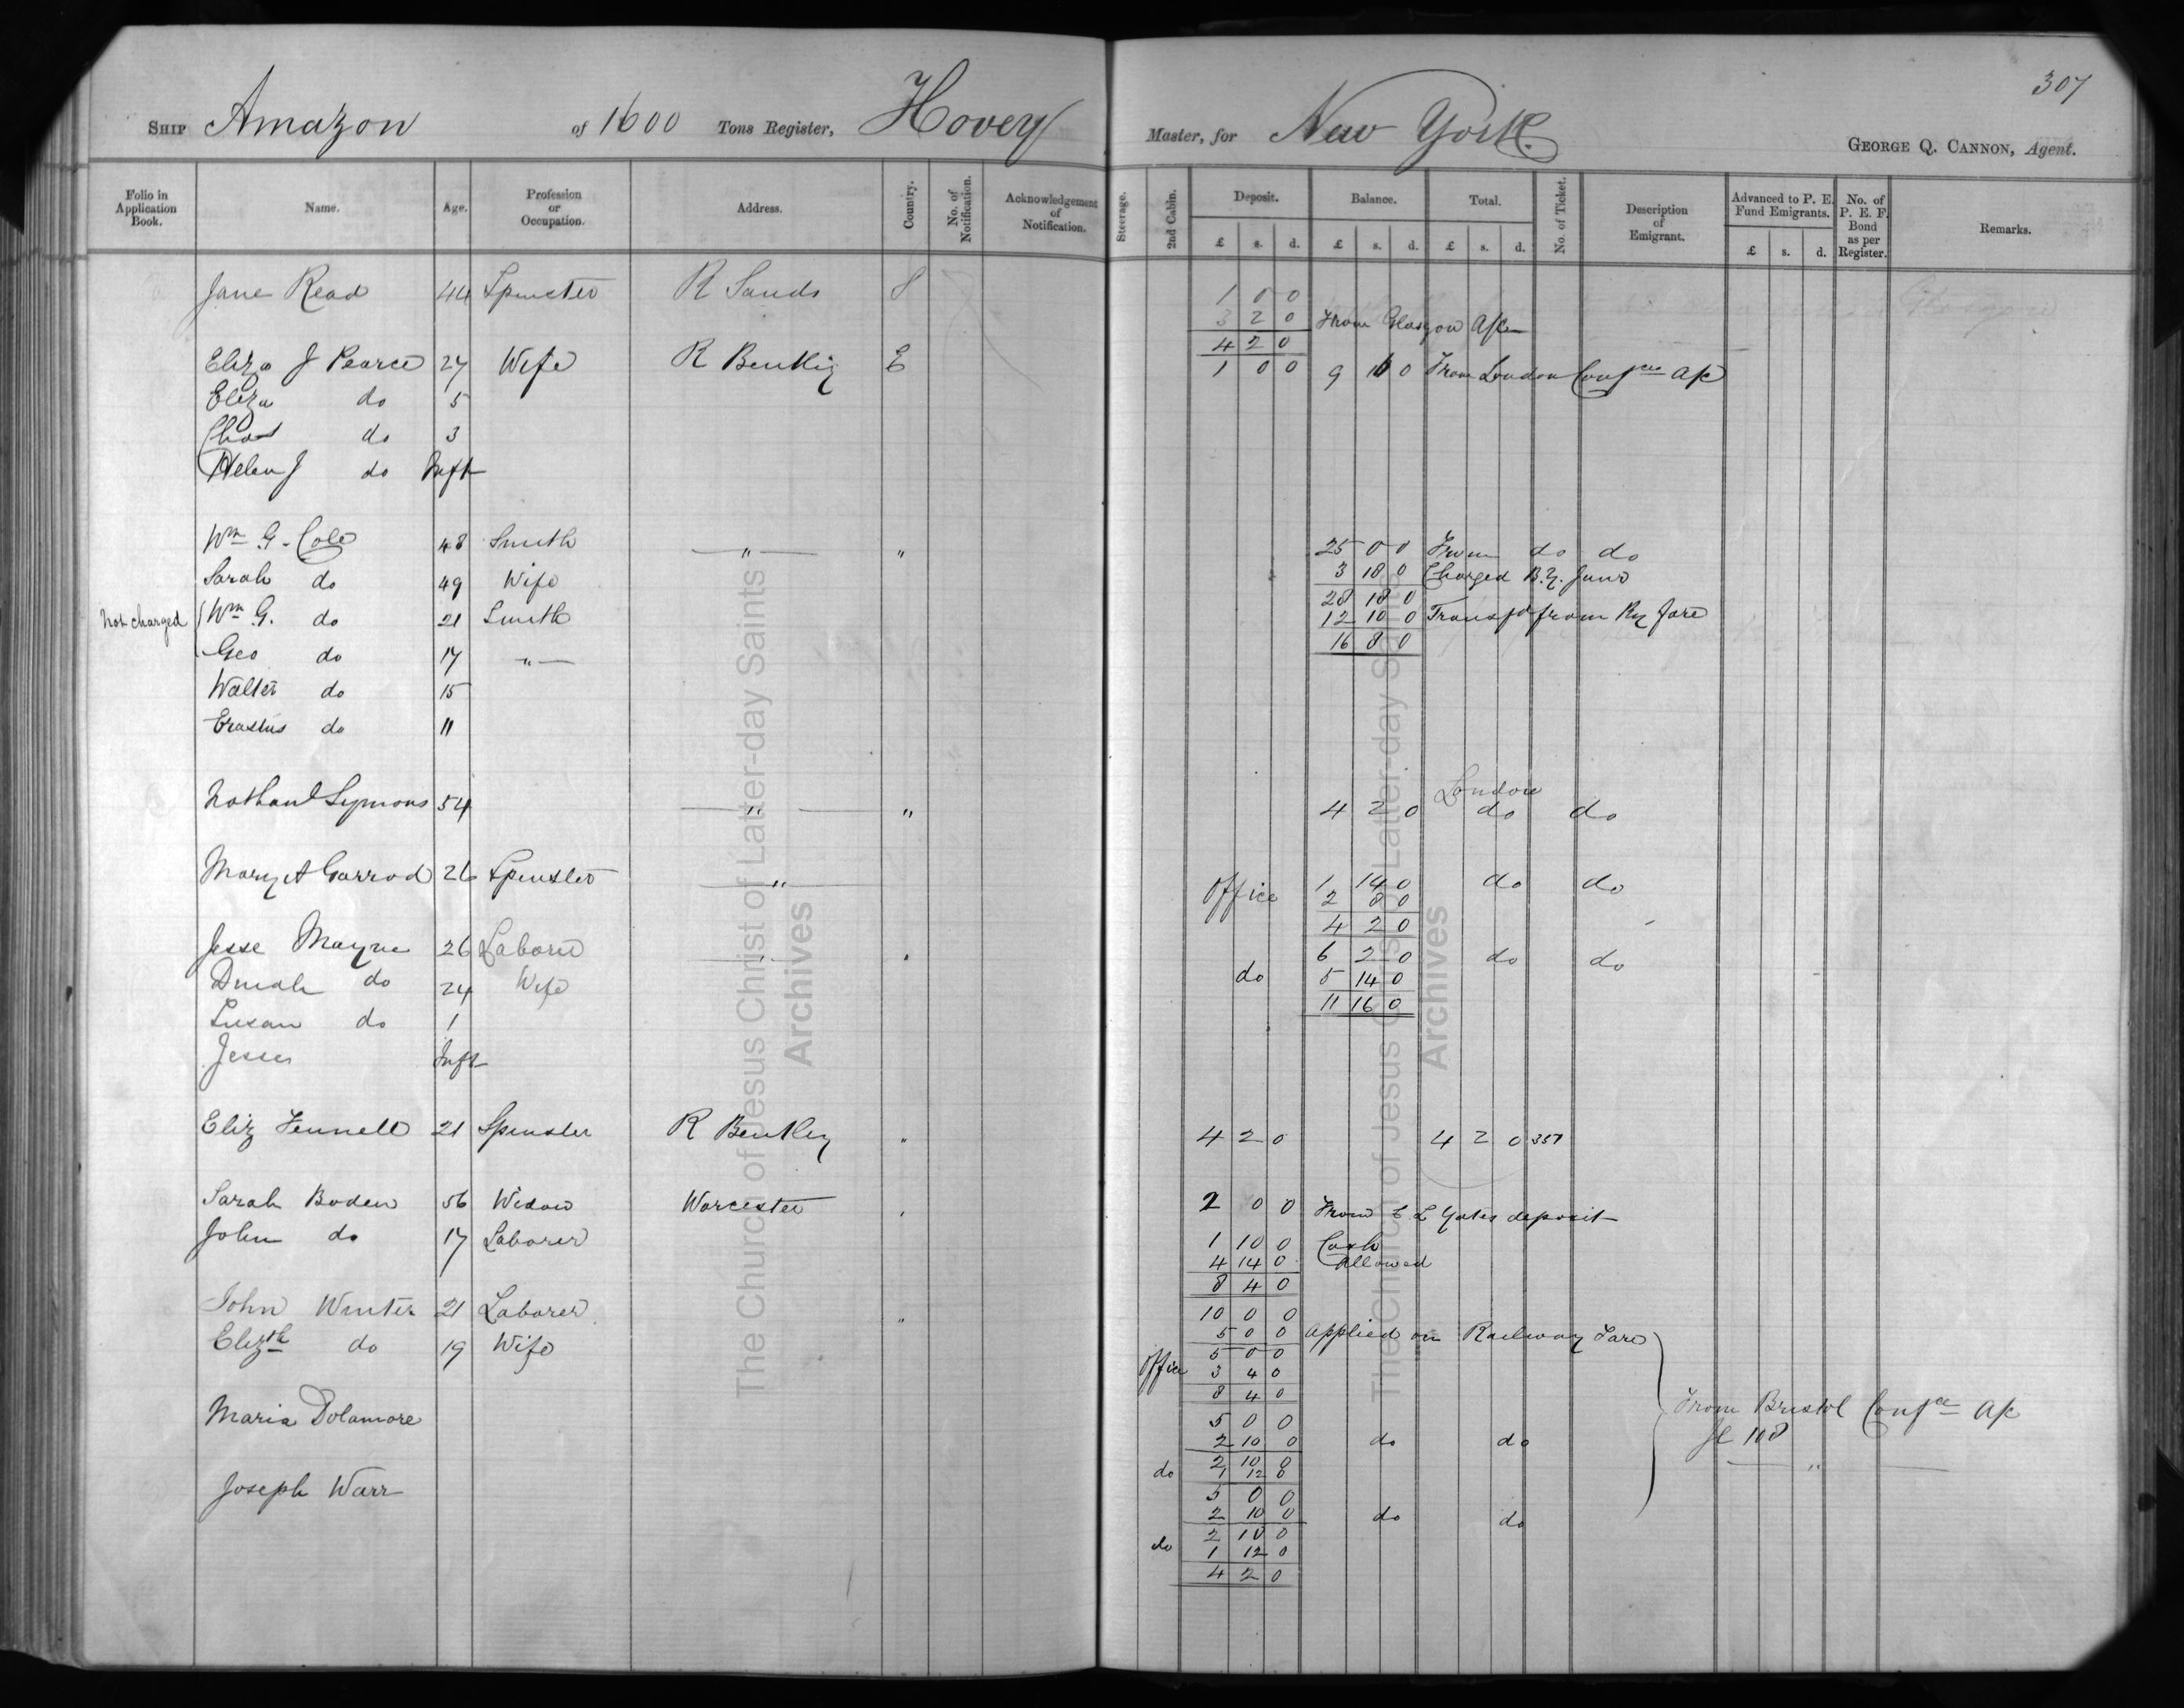 307
SHIP Amazon of 1600 Tons Register, Hovey Master, for New York. GEORGE Q. CANNON, Agent.
Folio in Application Book. Name. Age. Profession or Occupation. Address. Country. No. of Notification. Acknowledgement of Notification. Steerage. 2nd Cabin. Deposit. £ s. d. Balance. £ s. d. Total. £ s. d. No. of Ticket. Description of Emigrant. Advanced to P. E. Fund Emigrants. £ s. d. No. of P. E. F. Bond as per Register. Remarks.
Jane Read 44 Spinster R Sands S 1 0 0
3 2 0 From Glasgow A/c
4 2 0
Eliza J Pearce 27 Wife R Bentley E 1 0 0 9 16 0 From London Confce A/c
Eliza do 5
Chas do 3
Helen J do Inft
Wm G. Cole 48 Smith " " 25 0 0 From do do
Sarah do 49 Wife 3 18 0 Charged B.Y. Junr
28 18 0
not charged Wm G. do 21 Smith 12 10 0 Transfd from Ry fare
16 8 0
Geo do 17 "
Walter do 15
Erastus do 11
London
Nathanl Symons 54 " " 4 2 0 do do
Mary A Garrod 26 Spinster " Office 1 14 0 do do
2 8 0
4 2 0
Jesse Mayne 26 Laborer " " 6 2 0 do do
Dinah do 24 Wife do 5 14 0
11 16 0
Susan do 1
Jesse Inft
Eliz Fennell 21 Spinster R Bentley " 4 2 0 4 2 0 357
Sarah Boden 56 Widow Worcester " 2 0 0 From E L Yates deposit
John do 17 Laborer 1 10 0 Cash
4 14 0 Allowed
8 4 0
John Winter 21 Laborer " 10 0 0
5 0 0 applied on Railway Fare
Elizth do 19 Wife 5 0 0
Office 3 4 0
8 4 0
From Bristol Confce A/c
fl 108
"
Maria Dolamore 5 0 0
2 10 0 do do
2 10 0
do 1 12 0
Joseph Warr 5 0 0
2 10 0 do do
2 10 0
do 1 12 0
4 2 0
The Church of Jesus Christ of Latter-day Saints
Archives
The Church of Jesus Christ of Latter-day Saints
Archives